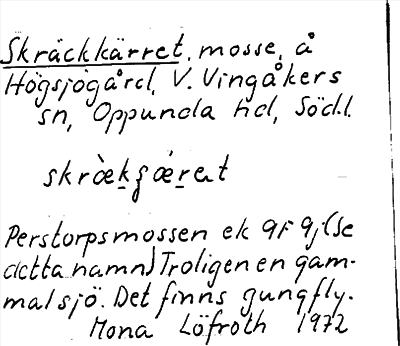 Skräckkärret, mosse, å
Högsjögård, V. Vingåkers
sn, Oppunda hd, Södl.
Perstorpsmossen ek 9F 9j (se
detta namn) Troligen en gam-
mal sjö. Det finns gungfly.
Mona Löfroth 1972